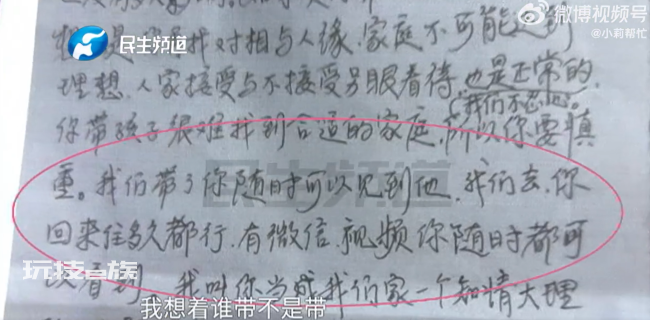 民生频道
微博视频号
@小莉帮忙
我对相与人缘.家庭不可能达到
理想.人家接受与不接受另眼看待.也是正常的.
(我们不忍心。)
你带孩子很难找到合适的家庭.所以你要慎
重。我们带了你随时可以见到他.我们去.你
民生频道
回来住多久都行.有微信.视频你随时都可
以看到.我叫你当成我们家一个知情大理
玩技百族
我想着谁带不是带